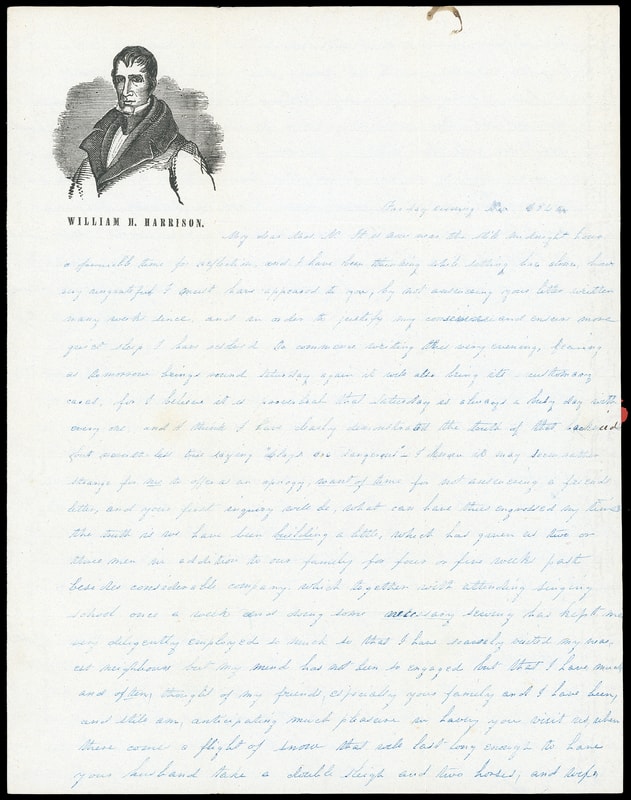 WILLIAM H. HARRISON.
evening
My dear It is now near the still midnight hour
a favourable time for reflection, and I have been thinking while sitting here alone, how
very ungrateful I must have appeared to you, by not answering your letter written
many weeks since, and in order to justify my conscience and ensure more
quiet sleep I have resolved to commence writing this very evening, fearing
as tomorrow brings round Saturday again it will also bring its customary
cares, for I believe it is proverbial that Saturday is always a busy day with
every one, and I think I have clearly demonstrated the truth of that
but never the less true saying "delays are dangerous" – I know it may seem rather
strange for me to offer as an apology, want of time for not answering a friends
letter, and your first inquiry will be, what can have thus engrossed my time
the truth is we have been building a little, which has given us two or
three men in addition to our family for four or five weeks past
besides considerable company, which together with attending singing
school once a week and doing some necessary sewing has kept me
very diligently employed so much so that I have scarcely visited my near
est neighbours but my mind has not been so engaged but that I have much
and often, thought of my friends, especially your family and I have been,
and still am, anticipating much pleasure in having you visit us when
there comes a flight of snow that will last long enough to have
your husband take a double sleigh and two horses, and wife,